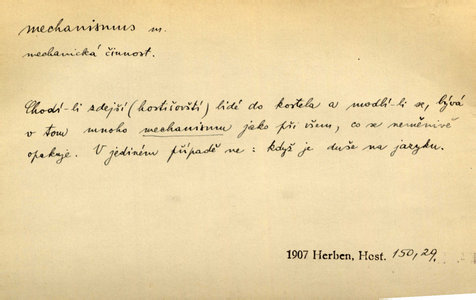 mechanismus m.
mechanická činnost.
Chodí-li zdejší (hostišovští) lidé do kostela a modlí-li se, bývá
v tom mnoho mechanismu jako při všem, co se neměnivě
opakuje. V jediném případě ne: když je duše na jazyku.
1907 Herben, Host. 150,29.